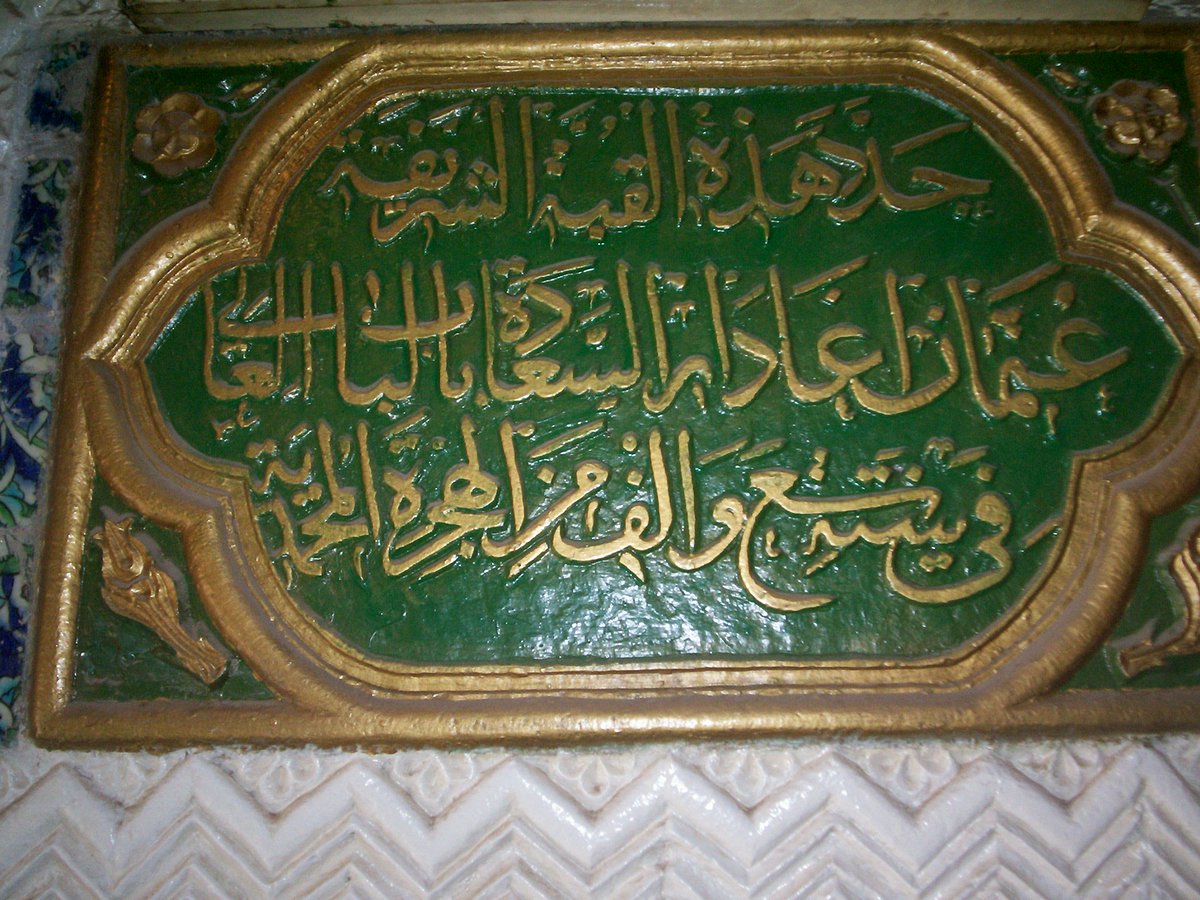 جدد هذه القبة الشريفة
عثمان اغا دار السعادة بالباب العالى
في سنة تسع والف من الهجرة المحمدية